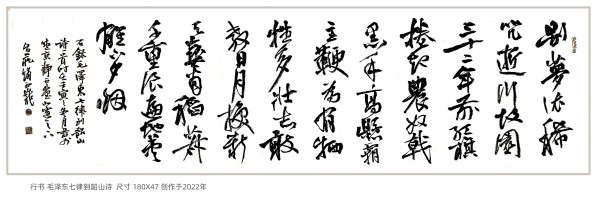 别夢依稀
咒逝川故園
三十二年前红旗
捲起農奴戟
黑手高懸霸
主鞭為有牺
牲多壮志敢
教日月换新
天喜看稻菽
千重浪遍地英
雄下夕烟
毛澤東七律到韶山
詩一首
行书 毛泽东七律到韶山诗 尺寸 180X47 创作于2022年